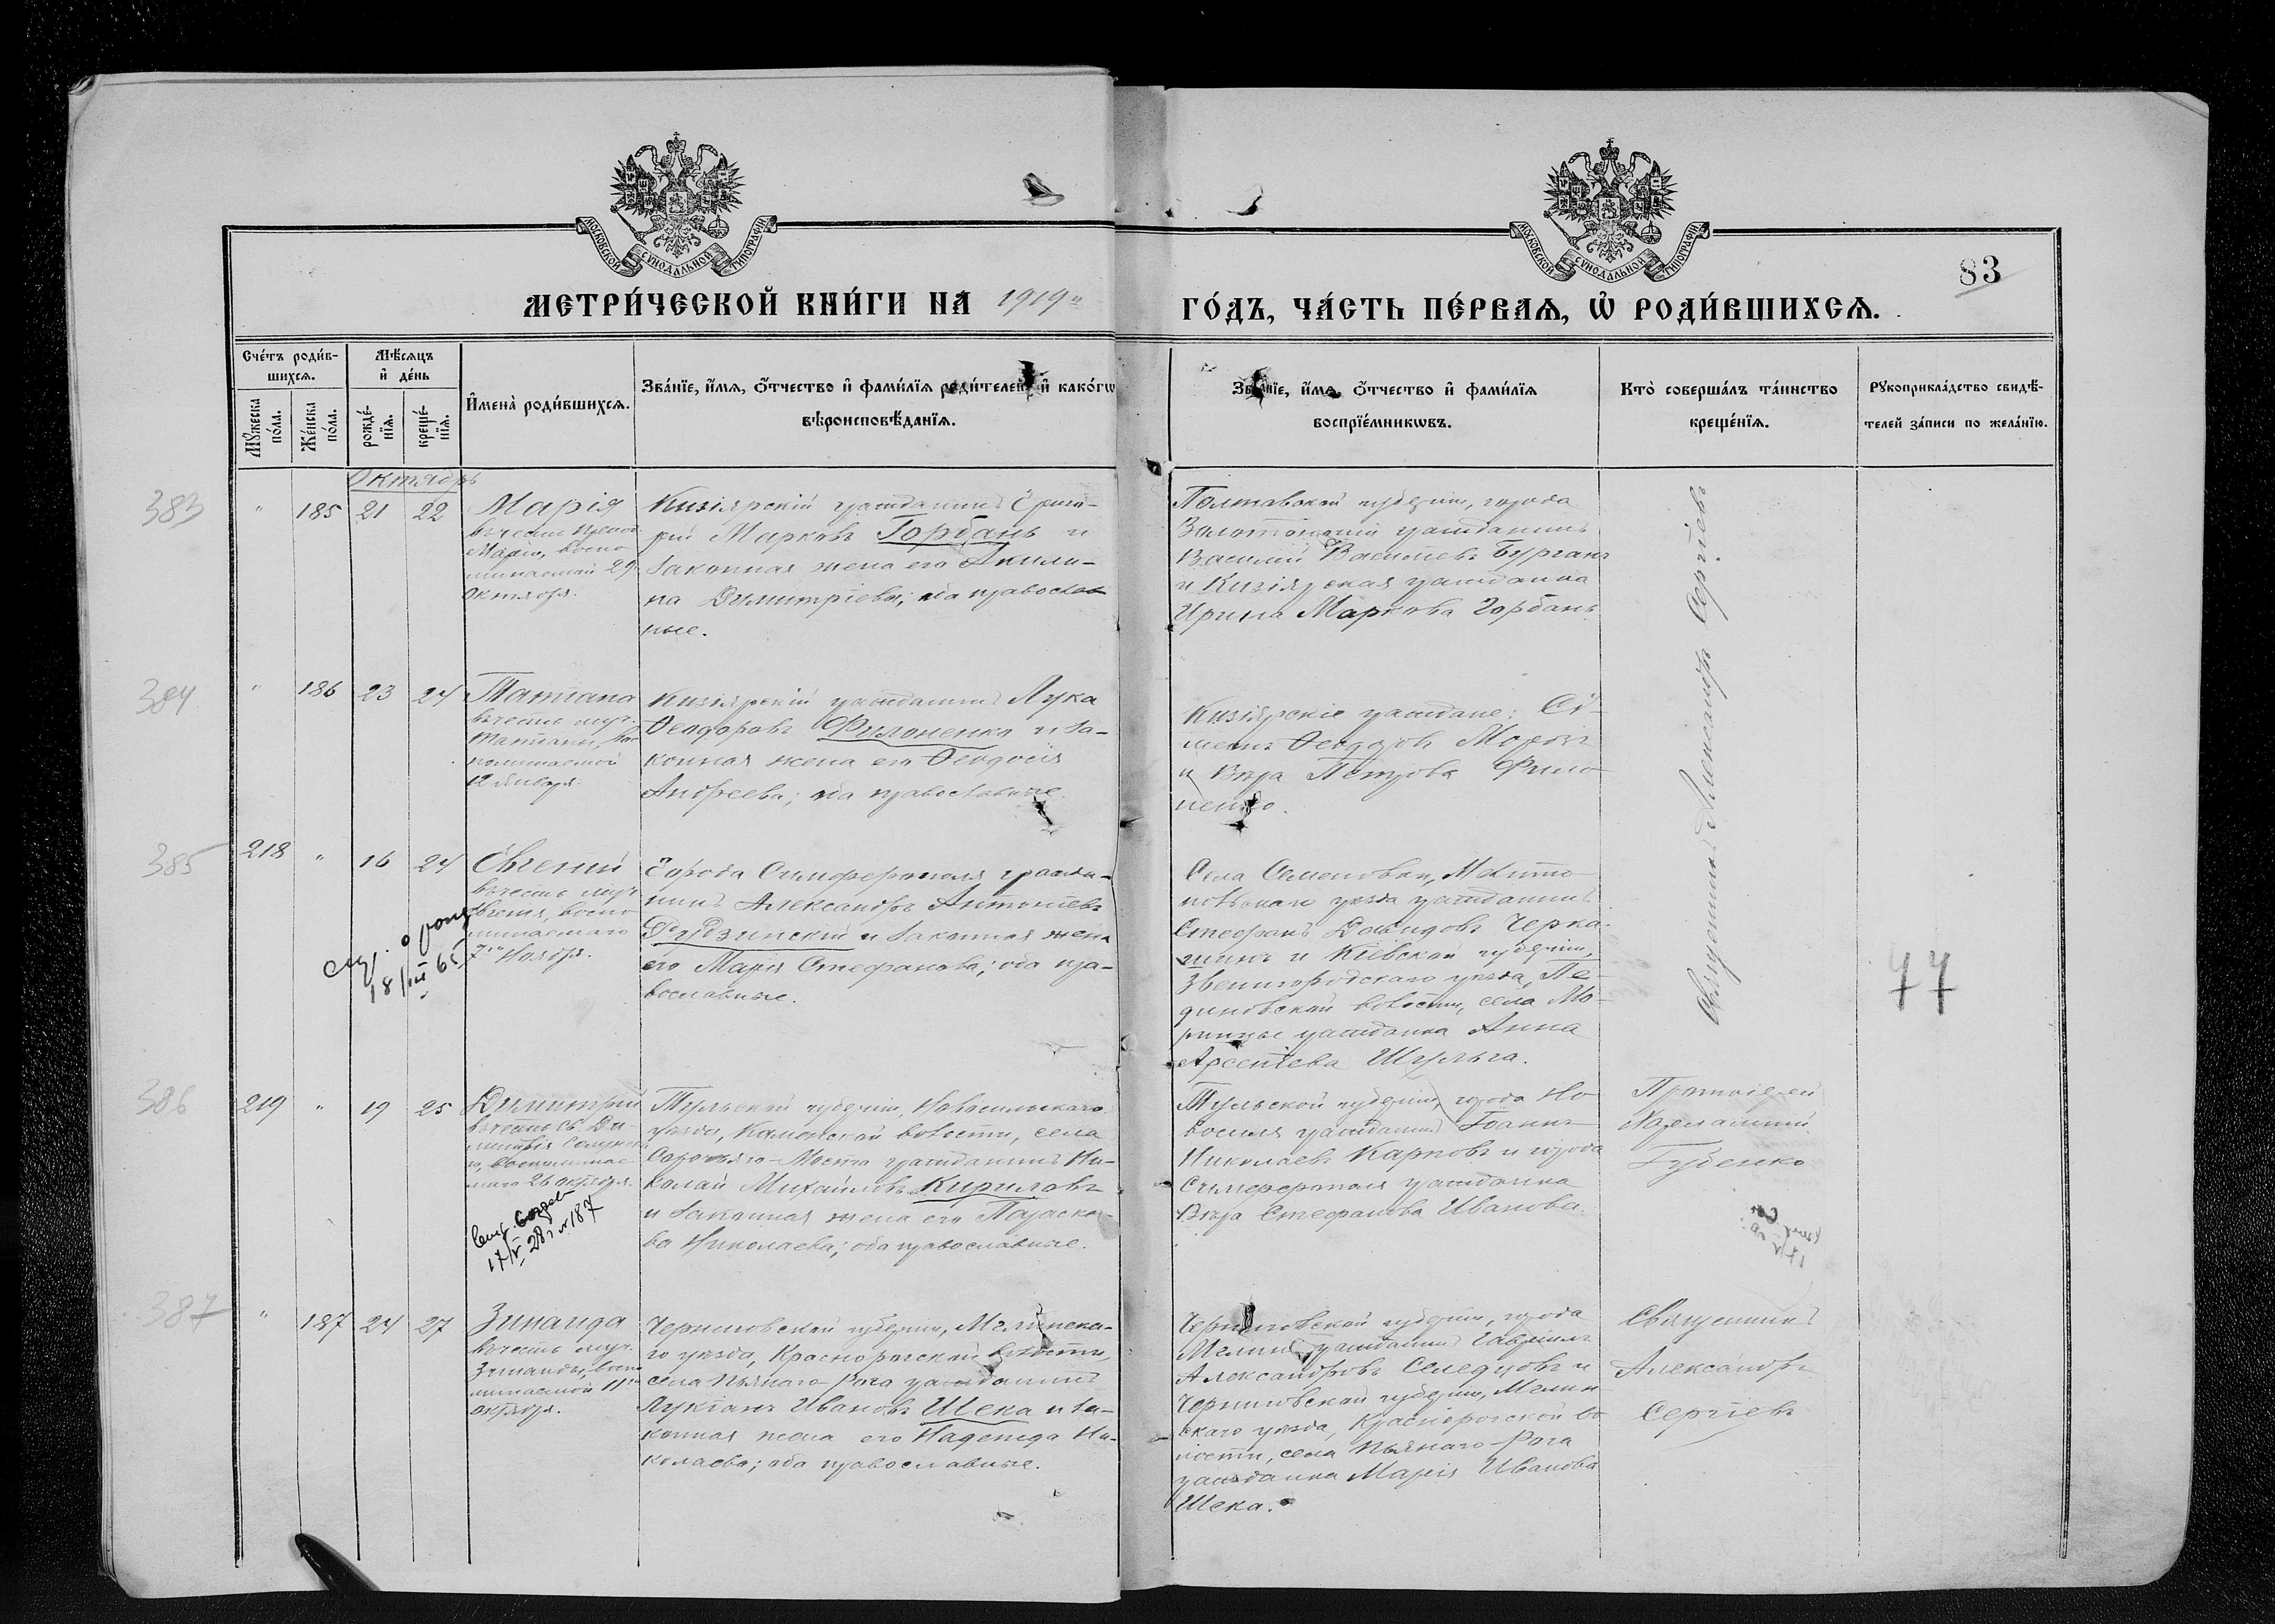 МОСКОВСКОЙ СѴНОДАЛЬНОЙ ТИПОГРАФІИ
МОСКОВСКОЙ СѴНОДАЛЬНОЙ ТИПОГРАФІИ
83
МЕТРИ́ЧЕСКОЙ КНИ́ГИ НА 1919
ГО́ДЪ, ЧА́СТЬ ПЕ́РВАѦ, Ѽ РОДИ́ВШИХСѦ.
Сче́тъ роди́в-
шихсѧ.
Мѣ́сѧцъ
и҆ де́нь
Мꙋ́жеска
по́ла.
Же́нска
по́ла.
рожде́-
нїѧ.
креще́-
нїѧ.
И҆мена̀ роди́вшихсѧ.
Зва́нїе, и҆́мѧ, ѻ҆́тчество и҆ фами́лїѧ роди́телей и҆ како́гѡ
вѣроисповѣ́данїѧ.
Зва́нїе, и҆́мѧ, ѻ҆́тчество и҆ фами́лїѧ
воспрїе́мникѡвъ.
Кто̀ соверша́лъ та́инство
креще́нїѧ.
Рꙋкоприкла́дство свидѣ́-
телей за́писи по жела́нїю.
Октябрь
383
" 185 21 22
Марія
въ честь
Маріи, воспо-
минаемой 29
октября.
Кизіярскій гражданинъ Григо-
рій Марковъ Горбань и
законная жена его Акили-
на Димитріева; оба православ-
ные.
Полтавской губерніи, города
Золотоноши гражданинъ
Василій Васильевъ Бурганъ
и Кизіярская гражданка
Ирина Маркова Горбань.
Священникъ Александръ Сергіевъ
384
" 186 23 24
Татіана
въ честь муч.
Татіаны, вос-
поминаемой
12 января.
Кизіярскій гражданинъ Лука
Ѳеодоровъ Филоненко и за-
конная жена его Ѳеодосія
Андреева; оба православные.
Кизіярскіе граждане: Сі-
меонъ Ѳеодоровъ Морозъ
и Вѣра Петрова Фило-
ненко.
385
218 " 16 24
Евгеній
въ честь муч.
Евгенія, воспо-
минаемаго
7го ноября.
18/III 65
Города Симферополя гражда-
нинъ Александръ Антоніевъ
Рудзинскій и законная жена
его Марія Стефанова; оба пра-
вославные.
Села Семеновки, Мелито-
польскаго уѣзда гражданинъ
Стефанъ Давидовъ Черка-
шинъ и Кіевской губерніи,
Звенигородскаго уѣзда, Пе-
диновской волости, села Мо-
ринцы гражданка Анна
Арсеніева Шульга.
77
386
219 " 19 25
Димитрій
въ честь св. Ди-
митрія Солунска-
го, воспоминае-
маго 26 октября.
17/V 28 г. № 187
Тульской губерніи, Новосильскаго
уѣзда, Каменской волости, села
гражданинъ Ни-
колай Михайловъ Кириловъ
и законная жена его Параске-
ва Николаева; оба православные.
Тульской губерніи, города Но-
восиля гражданинъ Іоаннъ
Николаевъ Карповъ и города
Симферополя гражданка
Вѣра Стефанова Иванова.
Протоіерей
Харлампій
Губенко
387
" 187 24 27
Зинаида
въ честь муч.
Зинаиды, воспо-
минаемой 11го
октября.
Черниговской губерніи, Мглинска-
го уѣзда, Краснорогской волости,
села Пьянаго-Рога гражданинъ
Лукіанъ Ивановъ Шека и за-
конная жена его Надежда Ни-
колаева; оба православные.
Черниговской губерніи, города
Мглина гражданинъ Гавріилъ
Александровъ Селедцовъ и
Черниговской губерніи, Мглин-
скаго уѣзда, Краснорогской во-
лости, села Пьянаго-Рога
гражданка Марія Иванова
Шека.
Священникъ
Александръ
Сергіевъ